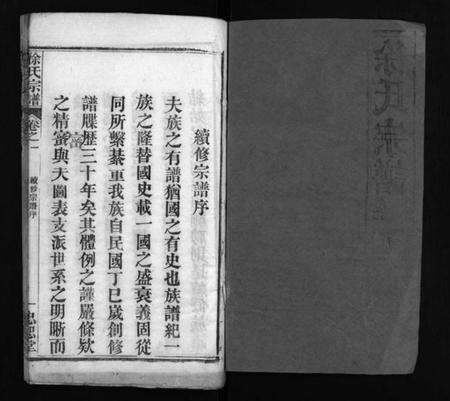 徐氏宗譜
續修宗譜序
夫族之有譜猶國之有史也族譜紀一
族之隆替國史載一國之盛衰義固從
同所繫綦重我族自民國丁巳歲創修
譜牒歷三十年矣其體例之謹嚴條欵
之精密與夫圖表支派世系之明晰而
徐氏宗譜
卷之一
續修宗譜序
一